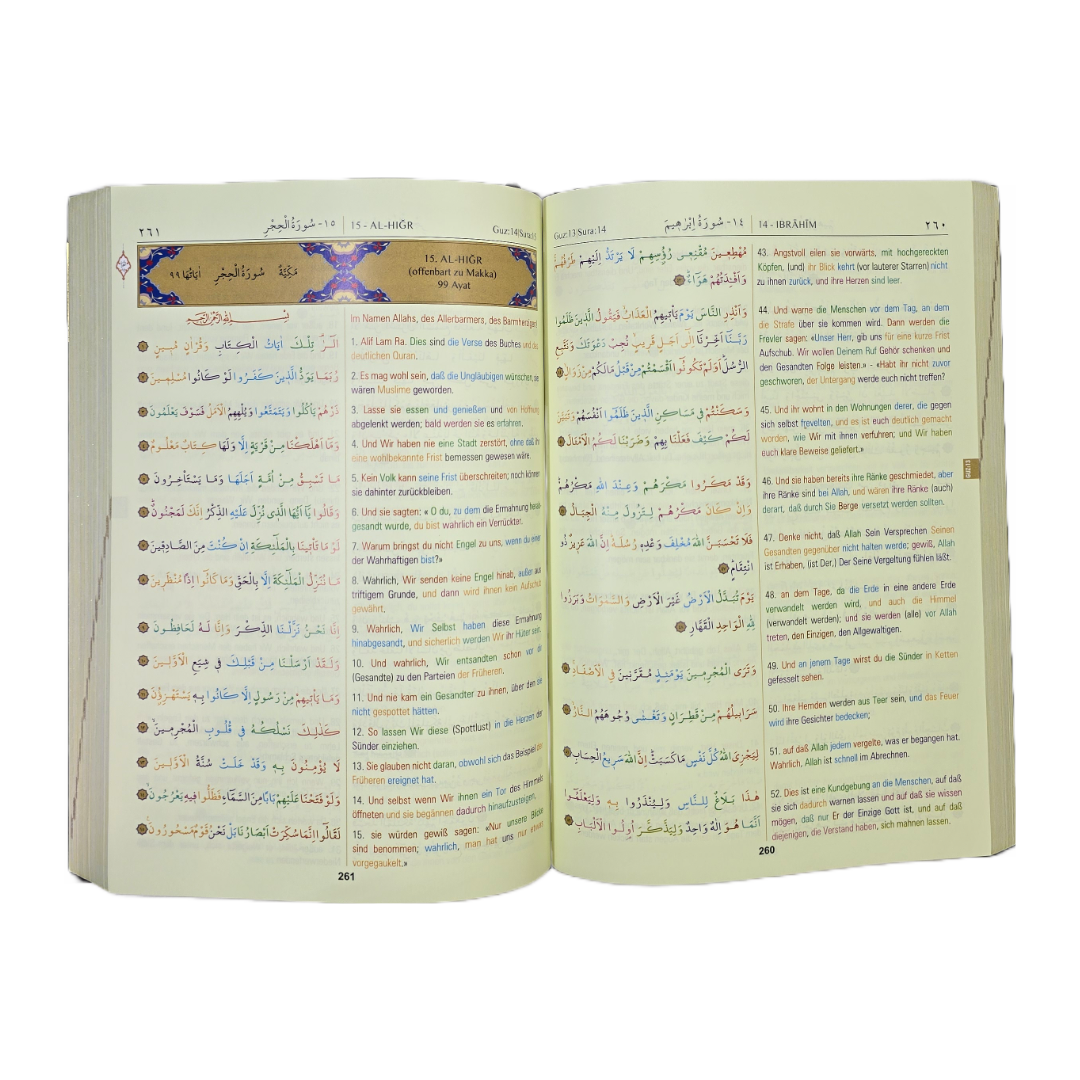 Guz:13|Sura:14
١٤- سُورَةُ اِبْرٰه۪يمَ
14 - IBRÂHÎM
٢٦٠
مُهْطِع۪ينَ مُقْنِع۪ى رُؤُ۫سِهِمْ لَا يَرْتَدُّ اِلَيْهِمْ طَرْفُهُمْۚ
وَاَفْـِٔدَتُهُمْ هَوَٓاءٌۜ
وَاَنْذِرِ النَّاسَ يَوْمَ يَأْت۪يهِمُ الْعَذَابُ فَيَقُولُ الَّذ۪ينَ ظَلَمُوا
رَبَّنَٓا اَخِّرْنَٓا اِلٰٓى اَجَلٍ قَر۪يبٍۙ نُجِبْ دَعْوَتَكَ وَنَتَّبِعِ
الرُّسُلَۜ اَوَلَمْ تَكُونُٓوا اَقْسَمْتُمْ مِنْ قَبْلُ مَالَكُمْ مِنْ زَوَالٍۙ
وَسَكَنْتُمْ ف۪ى مَسَاكِنِ الَّذ۪ينَ ظَلَمُٓوا اَنْفُسَهُمْ وَتَبَيَّنَ
لَكُمْ كَيْفَ فَعَلْنَا بِهِمْ وَضَرَبْنَا لَكُمُ الْاَمْثَالَ
وَقَدْ مَكَرُوا مَكْرَهُمْ وَعِنْدَ اللّٰهِ مَكْرُهُمْۜ
وَاِنْ كَانَ مَكْرُهُمْ لِتَزُولَ مِنْهُ الْجِبَالُ
فَلَا تَحْسَبَنَّ اللّٰهَ مُخْلِفَ وَعْدِه۪ رُسُلَهُۜ اِنَّ اللّٰهَ عَز۪يزٌ ذُو
انْتِقَامٍۜ
يَوْمَ تُبَدَّلُ الْاَرْضُ غَيْرَ الْاَرْضِ وَالسَّمٰوَاتُ وَبَرَزُوا
لِلّٰهِ الْوَاحِدِ الْقَهَّارِ
وَتَرَى الْمُجْرِم۪ينَ يَوْمَئِذٍ مُقَرَّن۪ينَ فِى الْاَصْفَادِۚ
سَرَاب۪يلُهُمْ مِنْ قَطِرَانٍ وَتَغْشٰى وُجُوهَهُمُ النَّارُۙ
لِيَجْزِىَ اللّٰهُ كُلَّ نَفْسٍ مَا كَسَبَتْۜ اِنَّ اللّٰهَ سَر۪يعُ الْحِسَابِ
هٰذَا بَلَاغٌ لِلنَّاسِ وَلِيُنْذَرُوا بِه۪ وَلِيَعْلَمُٓوا
اَنَّمَا هُوَ اِلٰهٌ وَاحِدٌ وَلِيَذَّكَّرَ اُو۬لُوا الْاَلْبَابِ
43. Angstvoll eilen sie vorwärts, mit hochgereckten
Köpfen, (und) ihr Blick kehrt (vor lauterer Starren) nicht
zu ihnen zurück, und ihre Herzen sind leer.
44. Und warne die Menschen vor dem Tag, an dem
die Strafe über sie kommen wird. Dann werden die
Frevler sagen: «Unser Herr, gib uns für eine kurze Frist
Aufschub. Wir wollen Deinem Ruf Gehör schenken und
den Gesandten Folge leisten.» - «Habt ihr nicht zuvor
geschworen, der Untergang werde euch nicht treffen?
45. Und ihr wohnt in den Wohnungen derer, die gegen
sich selbst frevelten, und es ist euch deutlich gemacht
worden, wie Wir mit ihnen verfuhren; und Wir haben
euch klare Beweise geliefert.»
46. Und sie haben bereits ihre Ränke geschmiedet, aber
ihre Ränke sind bei Allah, und wären ihre Ränke (auch)
derart, daß durch Sie Berge versetzt werden sollten.
47. Denke nicht, daß Allah Sein Versprechen Seinen
Gesandten gegenüber nicht halten werde; gewiß, Allah
ist Erhaben, (ist Der.) Der Seine Vergeltung fühlen läßt.
48. an dem Tage, da die Erde in eine andere Erde
verwandelt werden wird, und auch die Himmel
(verwandelt werden); und sie werden (alle) vor Allah
treten, den Einzigen, den Allgewaltigen.
49. Und an jenem Tage wirst du die Sünder in Ketten
gefesselt sehen.
50. Ihre Hemden werden aus Teer sein, und das Feuer
wird ihre Gesichter bedecken;
51. auf daß Allah jedem vergelte, was er begangen hat.
Wahrlich, Allah ist schnell im Abrechnen.
52. Dies ist eine Kundgebung an die Menschen, auf daß
sie sich dadurch warnen lassen und auf daß sie wissen
mögen, daß nur Er der Einzige Gott ist, und auf daß
diejenigen, die Verstand haben, sich mahnen lassen.
260
٢٦١
١٥- سُورَةُ الْحِجْرِ
15 - AL-HIĞR
Guz:14|Sura:15
مَكِّيَّةٌ سُورَةُ الْحِجْرِ اٰيَاتُهَا ٩٩
15. AL-HIĞR
(offenbart zu Makka)
99 Ayat
بِسْمِ اللّٰهِ الرَّحْمٰنِ الرَّح۪يمِ
الٓرٰ۠ تِلْكَ اٰيَاتُ الْكِتَابِ وَقُرْاٰنٍ مُب۪ينٍ
رُبَمَا يَوَدُّ الَّذ۪ينَ كَفَرُوا لَوْ كَانُوا مُسْلِم۪ينَ
ذَرْهُمْ يَأْكُلُوا وَيَتَمَتَّعُوا وَيُلْهِهِمُ الْاَمَلُ فَسَوْفَ يَعْلَمُونَ
وَمَٓا اَهْلَكْنَا مِنْ قَرْيَةٍ اِلَّا وَلَهَا كِتَابٌ مَعْلُومٌ
مَا تَسْبِقُ مِنْ اُمَّةٍ اَجَلَهَا وَمَا يَسْتَأْخِرُونَ
وَقَالُوا يَٓا اَيُّهَا الَّذ۪ى نُزِّلَ عَلَيْهِ الذِّكْرُ اِنَّكَ لَمَجْنُونٌۜ
لَوْ مَا تَأْت۪ينَا بِالْمَلٰٓئِكَةِ اِنْ كُنْتَ مِنَ الصَّادِق۪ينَ
مَا نُنَزِّلُ الْمَلٰٓئِكَةَ اِلَّا بِالْحَقِّ وَمَا كَانُٓوا اِذًا مُنْظَر۪ينَ
اِنَّا نَحْنُ نَزَّلْنَا الذِّكْرَ وَاِنَّا لَهُ لَحَافِظُونَ
وَلَقَدْ اَرْسَلْنَا مِنْ قَبْلِكَ ف۪ى شِيَعِ الْاَوَّل۪ينَ
وَمَا يَأْت۪يهِمْ مِنْ رَسُولٍ اِلَّا كَانُوا بِه۪ يَسْتَهْزِؤُ۫نَ
كَذٰلِكَ نَسْلُكُهُ ف۪ى قُلُوبِ الْمُجْرِم۪ينَۙ
لَا يُؤْمِنُونَ بِه۪ وَقَدْ خَلَتْ سُنَّةُ الْاَوَّل۪ينَ
وَلَوْ فَتَحْنَا عَلَيْهِمْ بَابًا مِنَ السَّمَٓاءِ فَظَلُّوا ف۪يهِ يَعْرُجُونَۙ
لَقَالُٓوا اِنَّمَا سُكِّرَتْ اَبْصَارُنَا بَلْ نَحْنُ قَوْمٌ مَسْحُورُونَ
Im Namen Allahs, des Allerbarmers, des Barmherzigen!
1. Alif Lam Ra. Dies sind die Verse des Buches und des
deutlichen Quran.
2. Es mag wohl sein, daß die Ungläubigen wünschen, sie
wären Muslime geworden.
3. Lasse sie essen und genießen und von Hoffnung
abgelenkt werden; bald werden sie es erfahren.
4. Und Wir haben nie eine Stadt zerstört, ohne daß ihr
eine wohlbekannte Frist bemessen gewesen wäre.
5. Kein Volk kann seine Frist überschreiten; noch können
sie dahinter zurückbleiben.
6. Und sie sagten: « O du, zu dem die Ermahnung herab-
gesandt wurde, du bist wahrlich ein Verrückter.
7. Warum bringst du nicht Engel zu uns, wenn du einer
der Wahrhaftigen bist?»
8. Wahrlich, Wir senden keine Engel hinab, außer aus
triftigem Grunde, und dann wird ihnen kein Aufschub
gewährt.
9. Wahrlich, Wir Selbst haben diese Ermahnung
hinabgesandt, und sicherlich werden Wir ihr Hüter sein.
10. Und wahrlich, Wir entsandten schon vor dir
(Gesandte) zu den Parteien der Früheren.
11. Und nie kam ein Gesandter zu ihnen, über den sie
nicht gespottet hätten.
12. So lassen Wir diese (Spottlust) in die Herzen der
Sünder einziehen.
13. Sie glauben nicht daran, obwohl sich das Beispiel der
Früheren ereignet hat.
14. Und selbst wenn Wir ihnen ein Tor des Himmels
öffneten und sie begännen dadurch hinaufzusteigen,
15. sie würden gewiß sagen: «Nur unsere Blicke
sind benommen; wahrlich, man hat uns nur etwas
vorgegaukelt.»
261